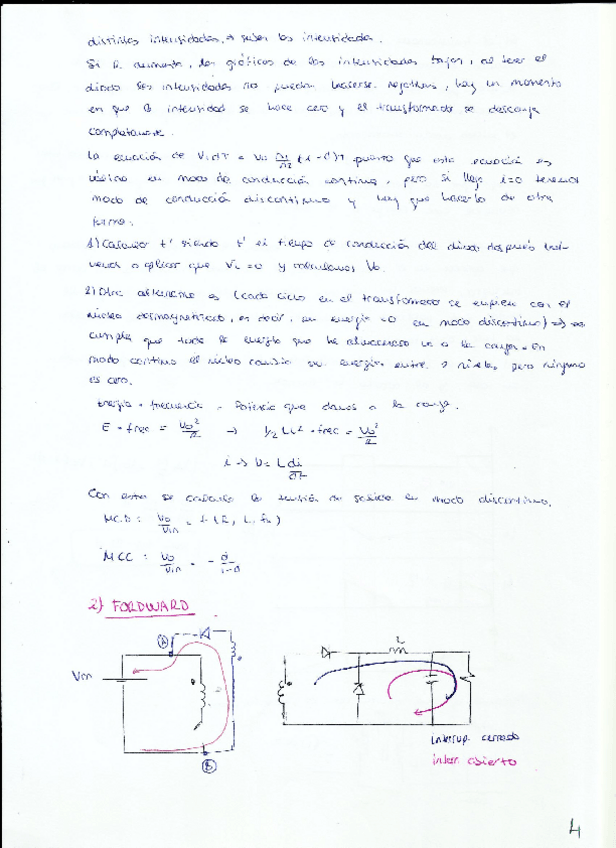 distintas intensidades, a saber las intensidades.
Si R aumenta, las gráficas de las intensidades bajan, al tener el
diodo las intensidades no pueden hacerse negativas, hay un momento
en que la intensidad se hace cero y el transformador se descarga
completamente.
La ecuación de Vi dT = Vo N1/N2 (1-d)T puesto que esta ecuación es
válida en modo de conducción continua, pero si llega i=0 tenemos
modo de conducción discontinuo y hay que hacerlo de otra
forma.
1) Calcular t' siendo t' el tiempo de conducción del diodo después
a aplicar que VL = 0 y calculamos Vo.
2) Otra alternativa es (cada ciclo en el transformador se empieza con el
núcleo desmagnetizado, es decir, su energía = 0 en modo discontinuo) => se
cumple que toda la energía que ha almacenado va a la carga. En
modo continuo el núcleo cambia su energía entre 2 niveles pero ninguno
es cero.
Energía · frecuencia = Potencia que damos a la carga.
E · frec = Vo²/R → 1/2 Li² · frec = Vo²/R
i → V = L di/dt
Con esto se calcula la tensión de salida en modo discontinuo.
MCD: Vo/Vin = f (R, L, fs)
MCC: Vo/Vin = - d/1-d
2) FORDWARD
A
L
Vin
B
interrup. cerrado
interr. abierto
4